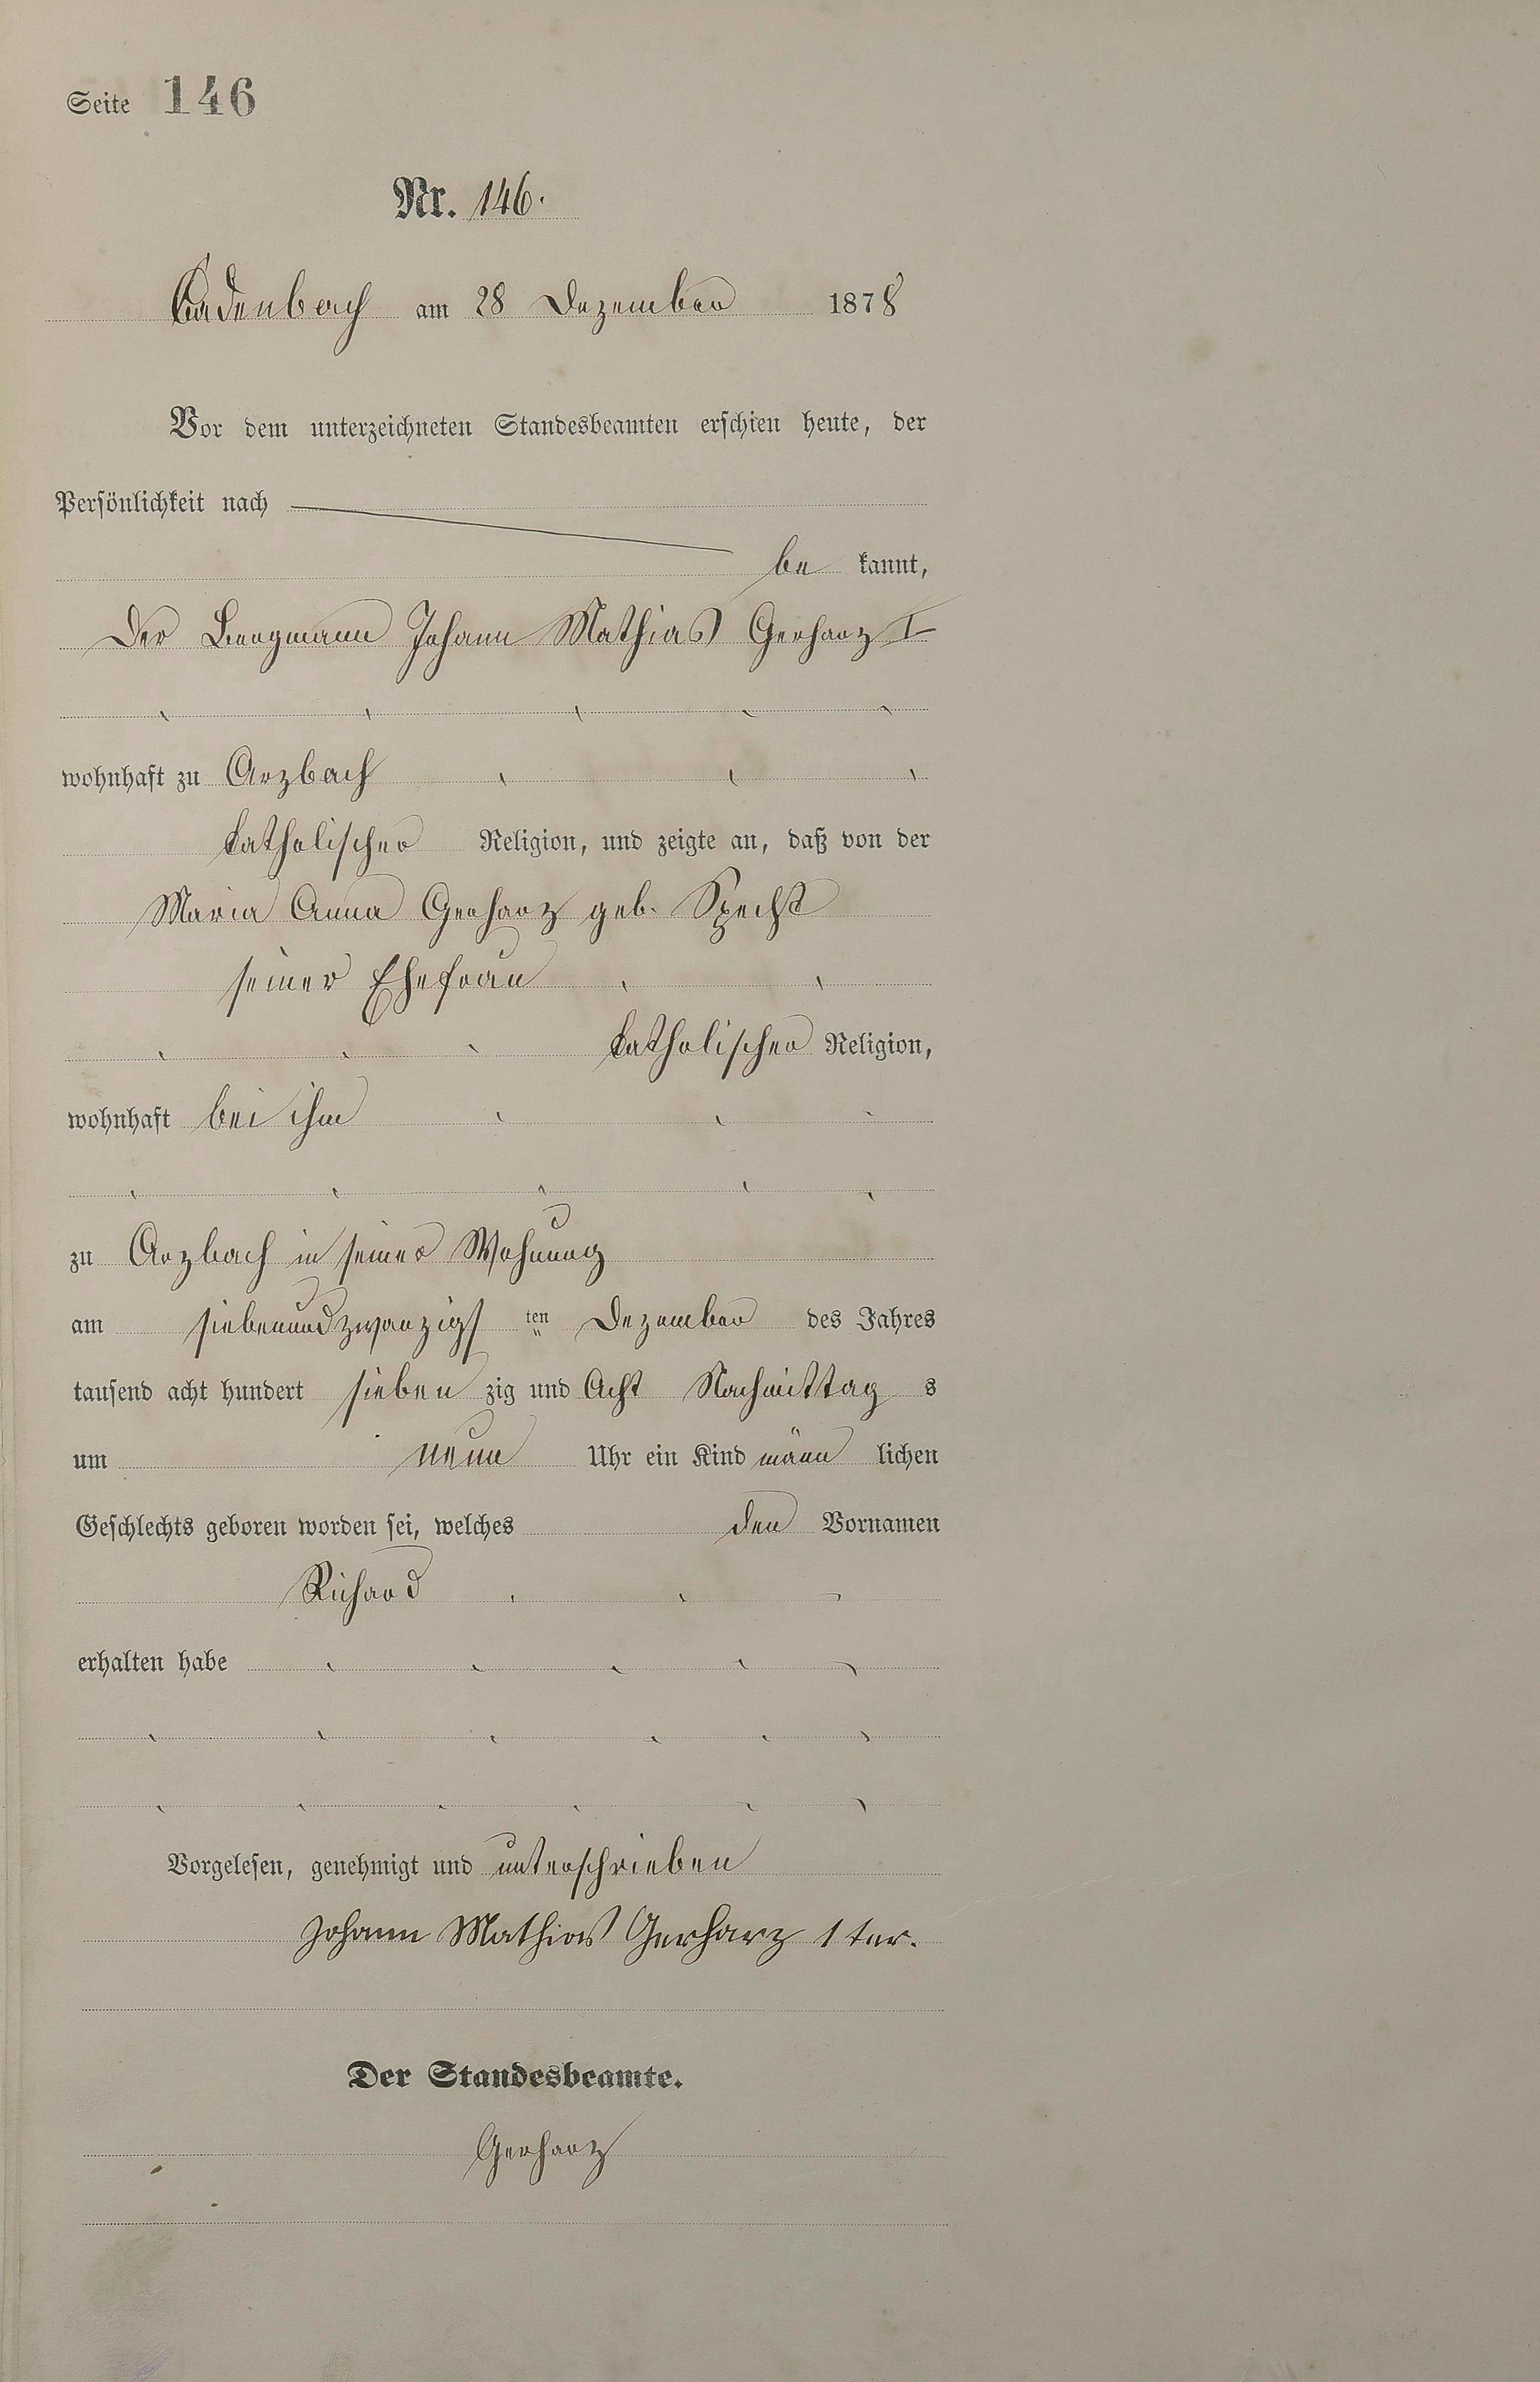 Seite 146
Nr. 146.
Cadenbach am 28 Dezember 1878
Vor dem unterzeichneten Standesbeamten erschien heute, der
Persönlichkeit nach
be kannt,
Der Bergmann Johann Mathias Gerharz I
wohnhaft zu Arzbach
katholischer Religion, und zeigte an, daß von der
Maria Anna Gerharz geb. Specht
seiner Ehefrau
katholischer Religion,
wohnhaft bei ihm
zu Arzbach in seiner Wohnung
am siebenundzwanzigs ten Dezember des Jahres
tausend acht hundert sieben zig und Acht Nachmittag s
um neun Uhr ein Kind männ lichen
Geschlechts geboren worden sei, welches den Vornamen
Richard
erhalten habe
Vorgelesen, genehmigt und unterschrieben
Johann Mathias Gerharz 1 ter.
Der Standesbeamte.
Gerharz